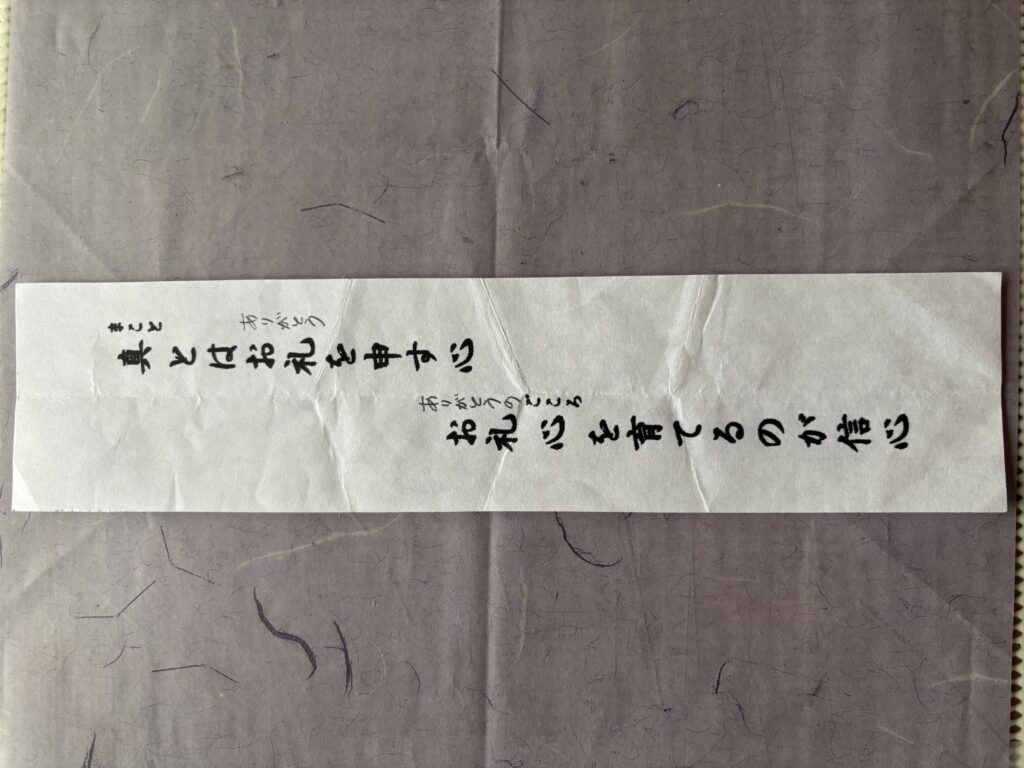 まこと ありがとう
真とはお礼を申す心
ありがとうのごころ
お礼心を育てるのが信心